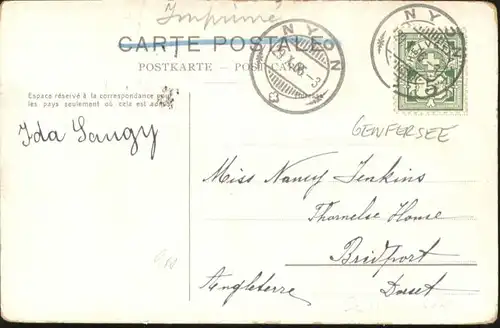 Imprimé
CARTE POSTALE
POSTKARTE — POST-CARD
NYON
NYON
5
Espace réservé à la correspondance
les pays seulement où cela est admis
GENFERSEE
Ida Saugy
Miss Nancy Jenkins
Thornelse Home
Bridport
Angleterre Dorset